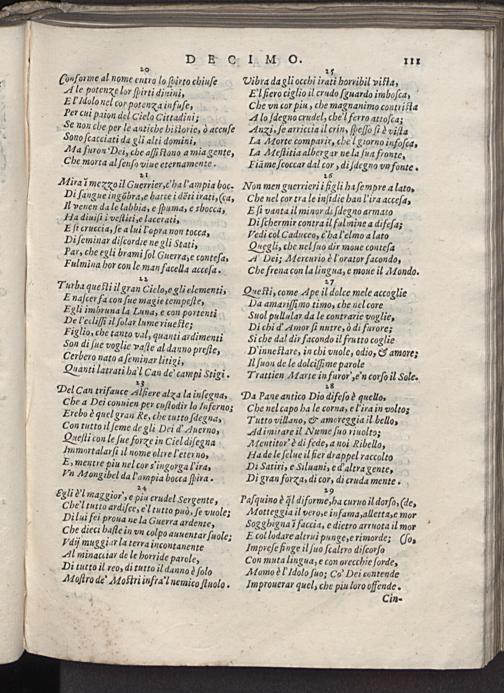 DECIMO. 111
20
Conforme al nome entro lo spirto chiuse
A le potenze lor spirti diuini,
E l'Idolo nel cor potenza infuse,
Per cui paion del Cielo Cittadini;
Se non che per le antiche historie, ò accuse
Sono scacciati da gli altri domini,
Ma furon Dei, che assistono a mia gente,
Che morta al senso viue eternamente.
21
Mira ĩ mezzo il Guerrier, c'ha l'ampia boc-
Di sangue ingõbra, e batte i dẽti irati, (ca,
Il venen da le labbia, e spuma, e sbocca,
Ha diuisi i vestiti, e lacerati,
E si cruccia, se a lui l'opra non tocca,
Di seminar discordie ne gli Stati,
Par, che egli brami sol Guerra, e contesa,
Fulmina hor con le man facella accesa.
22
Turba questi il gran Cielo, e gli elementi,
E nascer fa con sue magie tempeste,
Egli imbruna la Luna, e con portenti
De l'eclissi il solar lume riueste;
Figlio, che tanto val, quanti ardimenti
Son di sue voglie vaste al danno preste,
Cerbero nato a seminar litigi,
Quanti latrati ha'l Can de' campi Stigi.
23
Del Can trifauce Alfiere alza la insegna,
Che a Dei conuien per custodir lo Inferno;
Erebo è quel gran Re, che tutto sdegna,
Con tutto il seme de gli Dei d'Auerno,
Questi con le sue forze in Ciel disegna
Immortalarsi il nome oltre l'eterno,
E, mentre piu nel cor s'ingorga l'ira,
Vn Mongibel da l'ampia bocca spira.
24
Egli è'l maggior, e piu crudel Sergente,
Che'l tutto ardisce, e'l tutto può, se vuole;
Di lui fei proua ne la Guerra ardente,
Che dieci haste in vn colpo auuentar suole;
Vdij muggiar la terra incontanente
Al minacciar de le horride parole,
Di tutto il reo, di tutto il danno è solo
Mostro de' Mostri infra'l nemico stuolo.
25
Vibra da gli occhi irati horribil vista,
E'l fiero ciglio il crudo sguardo imbosca,
Che vn cor piu, che magnanimo contrista
A lo sdegno crudel, che'l ferro attosca;
Anzi, se arriccia il crin, spesso si è vista
La Morte comparir, che'l giorno infosca,
La Mestitia albergar ne la sua fronte,
Fiãme scoccar dal cor, di sdegno vn fonte.
26
Non men guerrieri i figli ha sempre a lato,
Che nel cor tra le insidie han l'ira accesa,
E si vanta il minor di sdegno armato
Di schermir contra il fulmine a difesa;
Vedi col Caduceo, c'ha l'elmo a lato
Quegli, che nel suo dir moue contesa
A' Dei; Mercurio è l'orator facondo,
Che frena con la lingua, e moue il Mondo.
27
Questi, come Ape il dolce mele accoglie
Da amarissimo timo, che nel core
Suol pullular da le contrarie voglie,
Di chi d'Amor si nutre, ò di furore;
Si che dal dir facondo il frutto coglie
D'innestare, in chi vuole, odio, & amore;
Il suon de le dolcissime parole
Trattien Marte in furor', e'n corso il Sole.
28
Da Pane antico Dio difeso è quello,
Che nel capo ha le corna, e l'ira in volto;
Tutto villano, & amoreggia il bello,
Ad imirare il Nume suo riuolto;
Mentitor' è di fede, a noi Ribello,
Ha de le selue il fier drappel raccolto
Di Satiri, e Siluani, e d'altra gente,
Di gran forza, di cor, di cruda mente.
29
Pasquino è q̃l diforme, ha curuo il dorso, (de,
Motteggia il vero, e infama, alletta, e mor
Sogghigna ĩ faccia, e dietro arruota il mor
E col lodare altrui punge, e rimorde; (so,
Imprese finge il suo scaltro discorso
Con muta lingua, e con orecchie sorde,
Momo è l'Idolo suo; Co' Dei contende
Improuerar quel, che piu loro offende.
Cin-